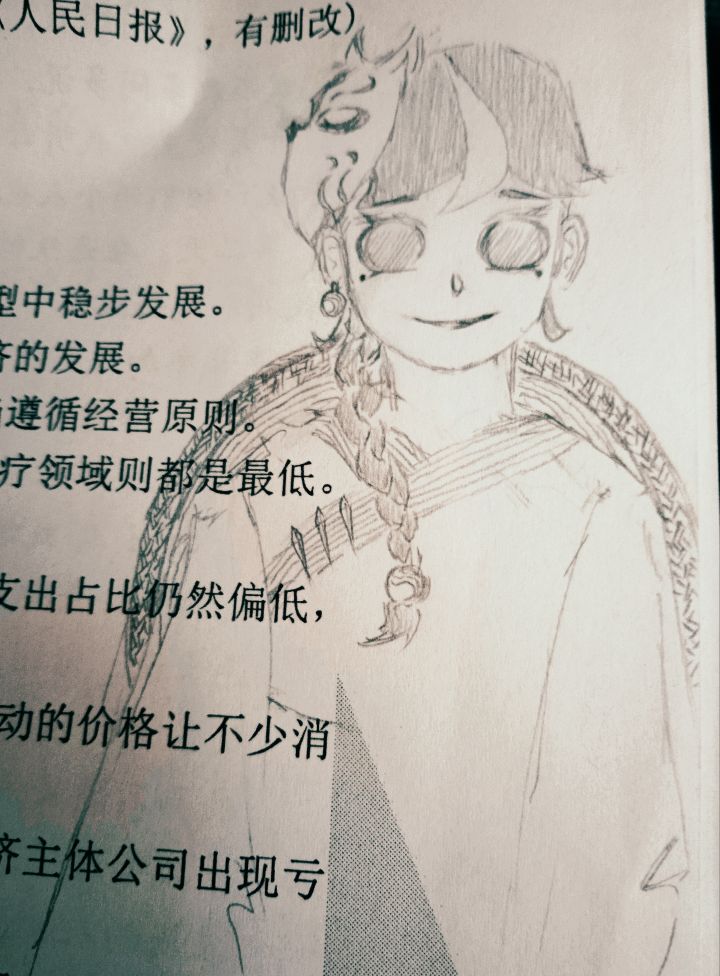 《人民日报》，有删改）
型中稳步发展。
的发展。
遵循经营原则。
疗领域则都是最低。
支出占比仍然偏低，
动的价格让不少消
济主体公司出现亏